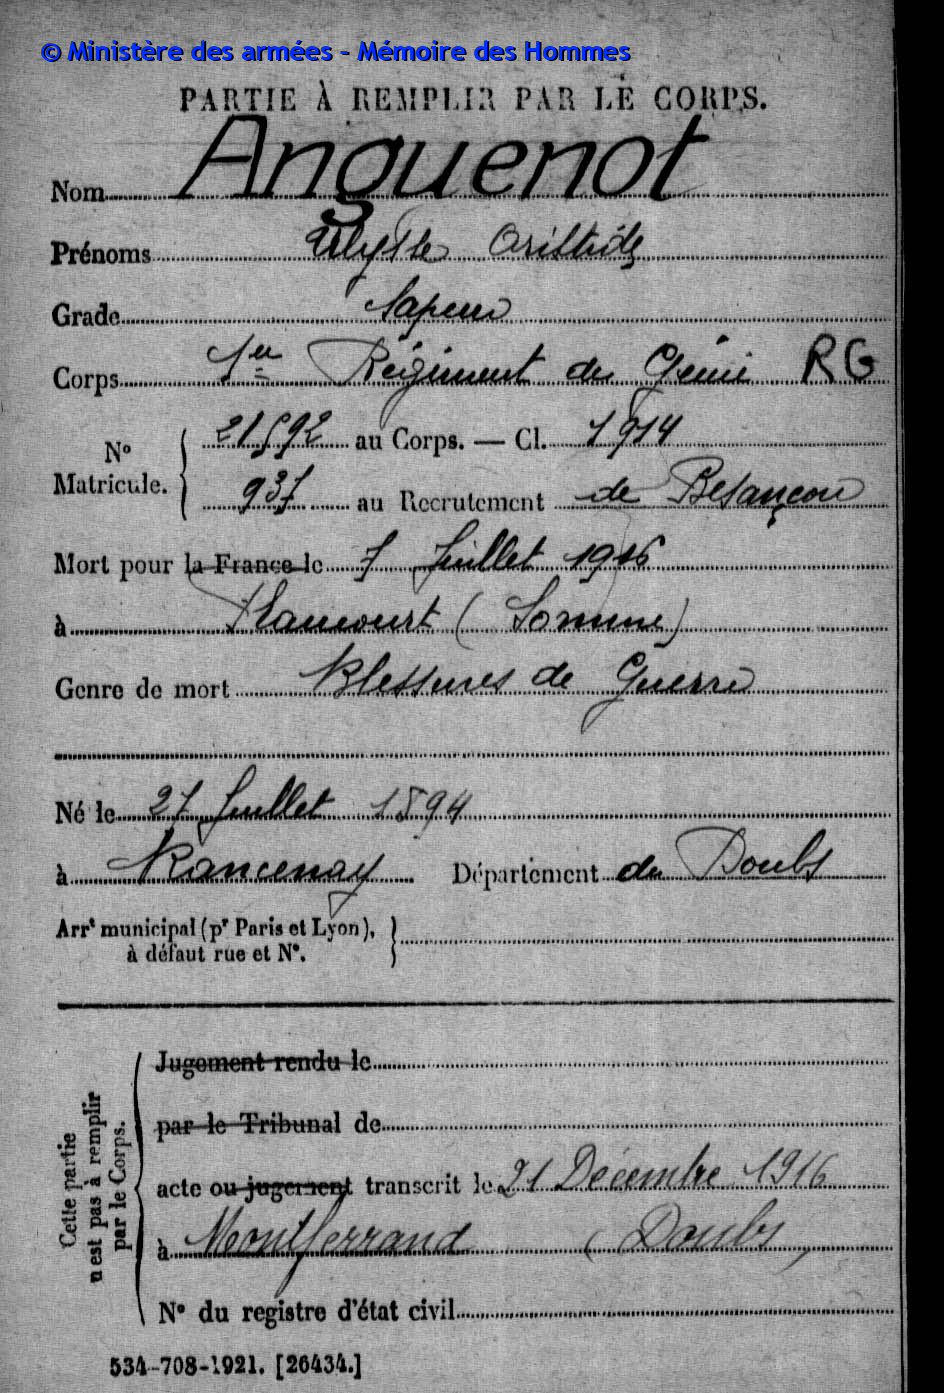 © Ministère des armées - Mémoire des Hommes
PARTIE À REMPLIR PAR LE CORPS.
Nom Anguenot
Prénoms Ulysse Aristide
Grade Sapeur
Corps 1er Régiment de Génie RG
No Matricule. 21592 au Corps. — Cl. 1914
937 au Recrutement de Besançon
Mort pour la France le 7 Juillet 1916
à Flaucourt (Somme)
Genre de mort Blessures de Guerre
Né le 27 Juillet 1894
à Rancenay Département du Doubs
Arrt municipal (pr Paris et Lyon),
à défaut rue et N°.
Cette partie
n'est pas à remplir
par le Corps.
Jugement rendu le
par le Tribunal de
acte ou jugement transcrit le 21 Décembre 1916
à Montferrand (Doubs)
N° du registre d'état civil
534-708-1921. [26434.]